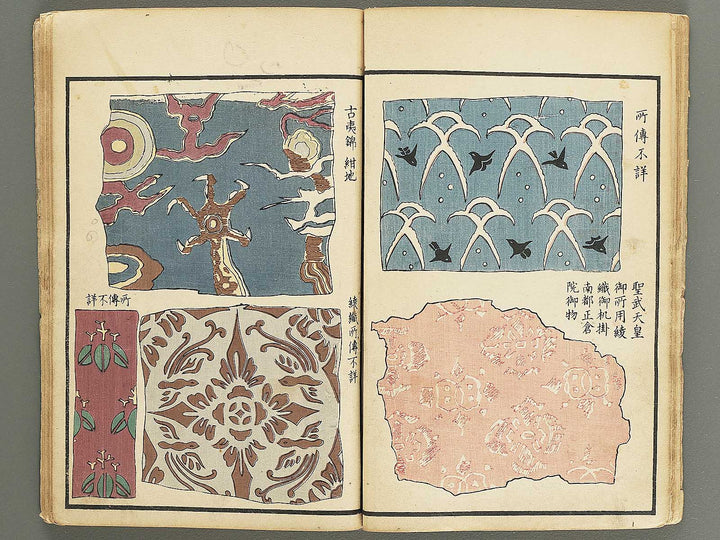 所傳不詳
聖武天皇
御所用綾
織御机掛
南都正倉
院御物
古夷錦 紺地
綾織所傳不詳
所傳不詳